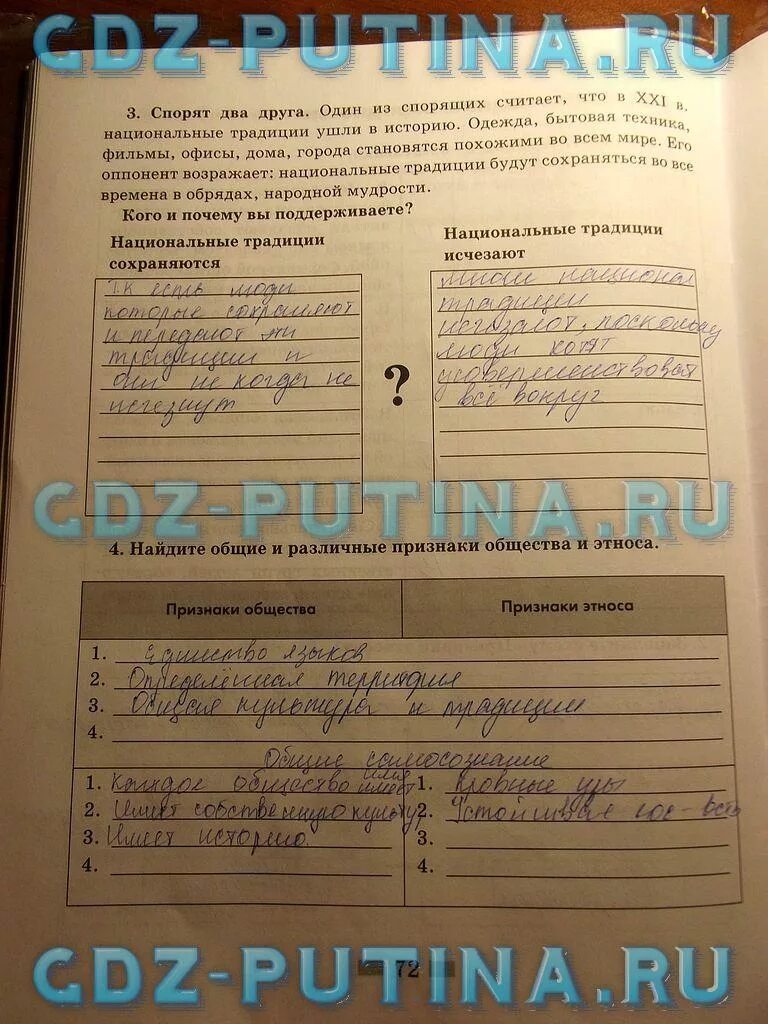 GDZ-PUTINA.RU
3. Спорят два друга. Один из спорящих считает, что в XXI в.
национальные традиции ушли в историю. Одежда, бытовая техника,
фильмы, офисы, дома, города становятся похожими во всем мире. Его
оппонент возражает: национальные традиции будут сохраняться во все
времена в обрядах, народной мудрости.
Кого и почему вы поддерживаете?
Национальные традиции
сохраняются
Т.к есть люди
которые сохраняют
и передают эти
традиции и
они не когда не
исчезнут
?
Национальные традиции
исчезают
традиции
поскольку
люди хотят
всё вокруг
GDZ-PUTINA.RU
4. Найдите общие и различные признаки общества и этноса.
Признаки общества
Признаки этноса
1. Единство языков
2. Определённая территория
3. Общая культура и традиции
4.
Общие самосознание
1. Каждое общество имеет
2. Имеет собственную культур
3. Имеет историю.
4.
1. Кровные узы
2.
3.
4.
72
GDZ-PUTINA.RU